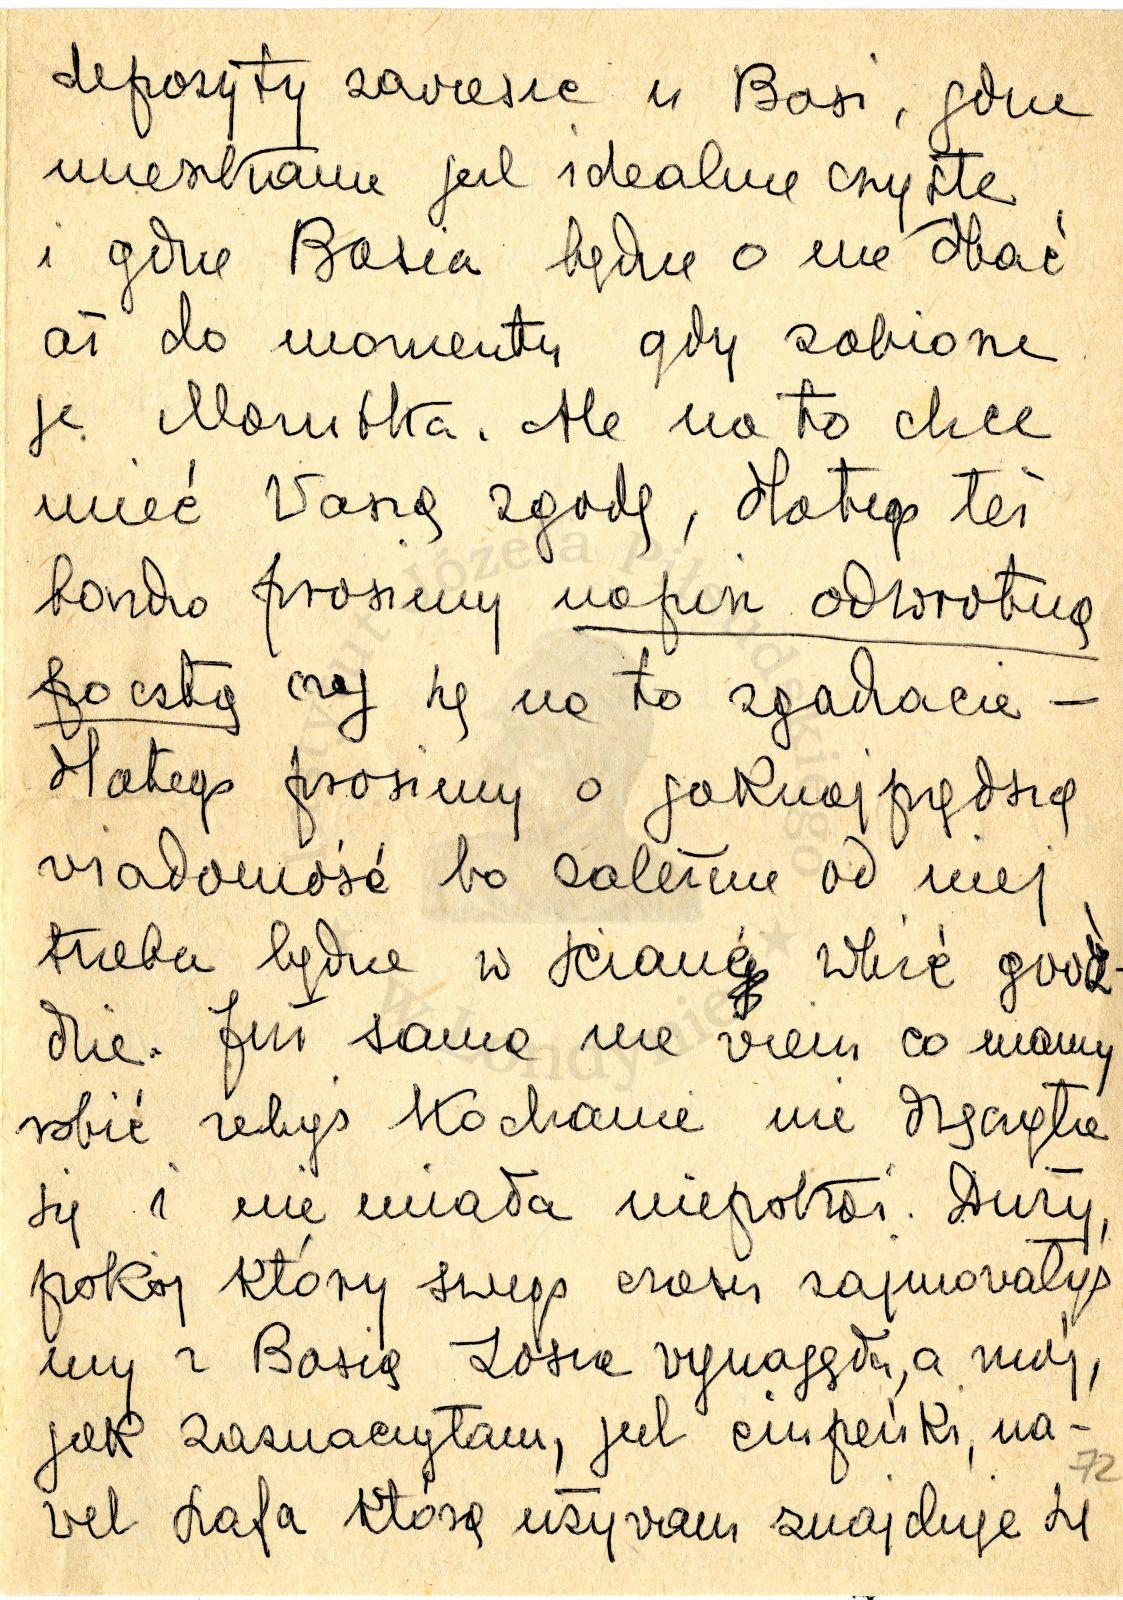 depozyty zawiesić u Basi, gdzie
mieszkanie jest idealnie czyste
i gdzie Basia będzie o nie dbać
aż do momentu gdy zabierze
je Marutka. Ale na to chcę
mieć Waszą zgodę, dlatego też
bardzo prosimy napisz odwrotną
pocztą czy się na to zgadzacie –
dlatego prosimy o jaknajprędszą
wiadomość bo zależnie od niej
trzeba będzie w ścianę wbić gwoź-
dzie. Już sama nie wiem co mamy
robić żebyś Kochanie nie dręczyła
się i nie miała niepokoi. Duży,
pokój który swego czasu zajmowałyś
my z Basią Zosia wynajęła, a mój,
jak zaznaczyłam, jest ciupeńki, na-
wet szafa którą używam znajduje się
72
Instytut Józefa Piłsudskiego
w Londynie